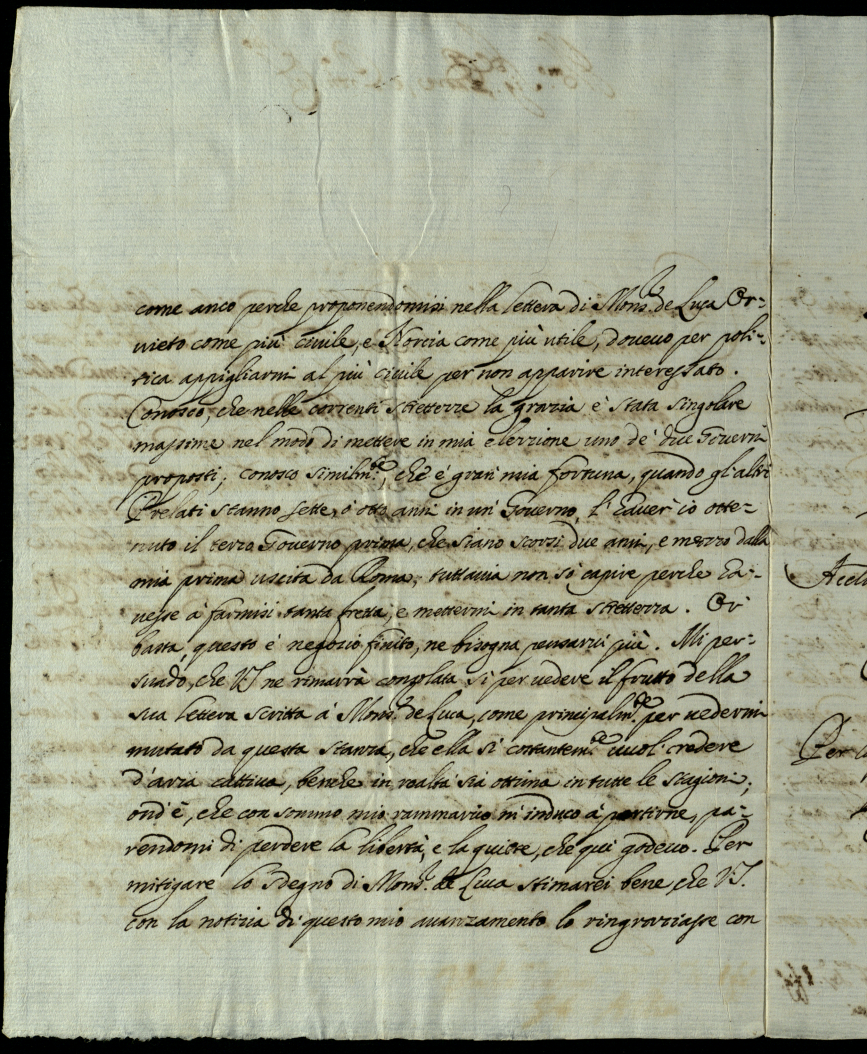 come anco perche proponendomisi nella lettera di Mons.r de Luca Or=
vieto come più civile, e Norcia come più utile, dovevo per poli=
tica appigliarmi al più civile per non apparire interessato.
Conosco, che nelle correnti strettezze la grazia è stata singolare
massime nel modo di mettere in mia elezzione uno de' due Governi
proposti; conosco similm.te, che è gran mia fortuna, quando gl'altri
Prelati stanno sette, ò otto anni in un' Governo, l'haver' io otte=
nuto il terzo Governo prima, che siano scorsi due anni, e mezzo dalla
mia prima uscita da Roma; tuttavia non sò capire perche ha=
vesse à farmisi tanta fretta, e mettermi in tanta strettezza. Or'
basta, questo è negozio finito, ne bisogna pensarvi più. Mi per=
suado, che VS ne rimarrà consolata si per vedere il frutto della
sua lettera scritta à Mons.r de Luca, come principalm.te per vedermi
mutato da questa stanza, che ella si costantem.te vuol credere
d'aria cattiva, benche in realtà sia ottima in tutte le stagioni;
ond'è, che con sommo mio rammarico m'induco à partirne, pa=
rendomi di perdere la libertà, e la quiete, che qui godevo. Per
mitigare lo sdegno di Mons.r de Luca stimarei bene, che VS.
con la notizia di questo mio avanzamento lo ringraziasse con